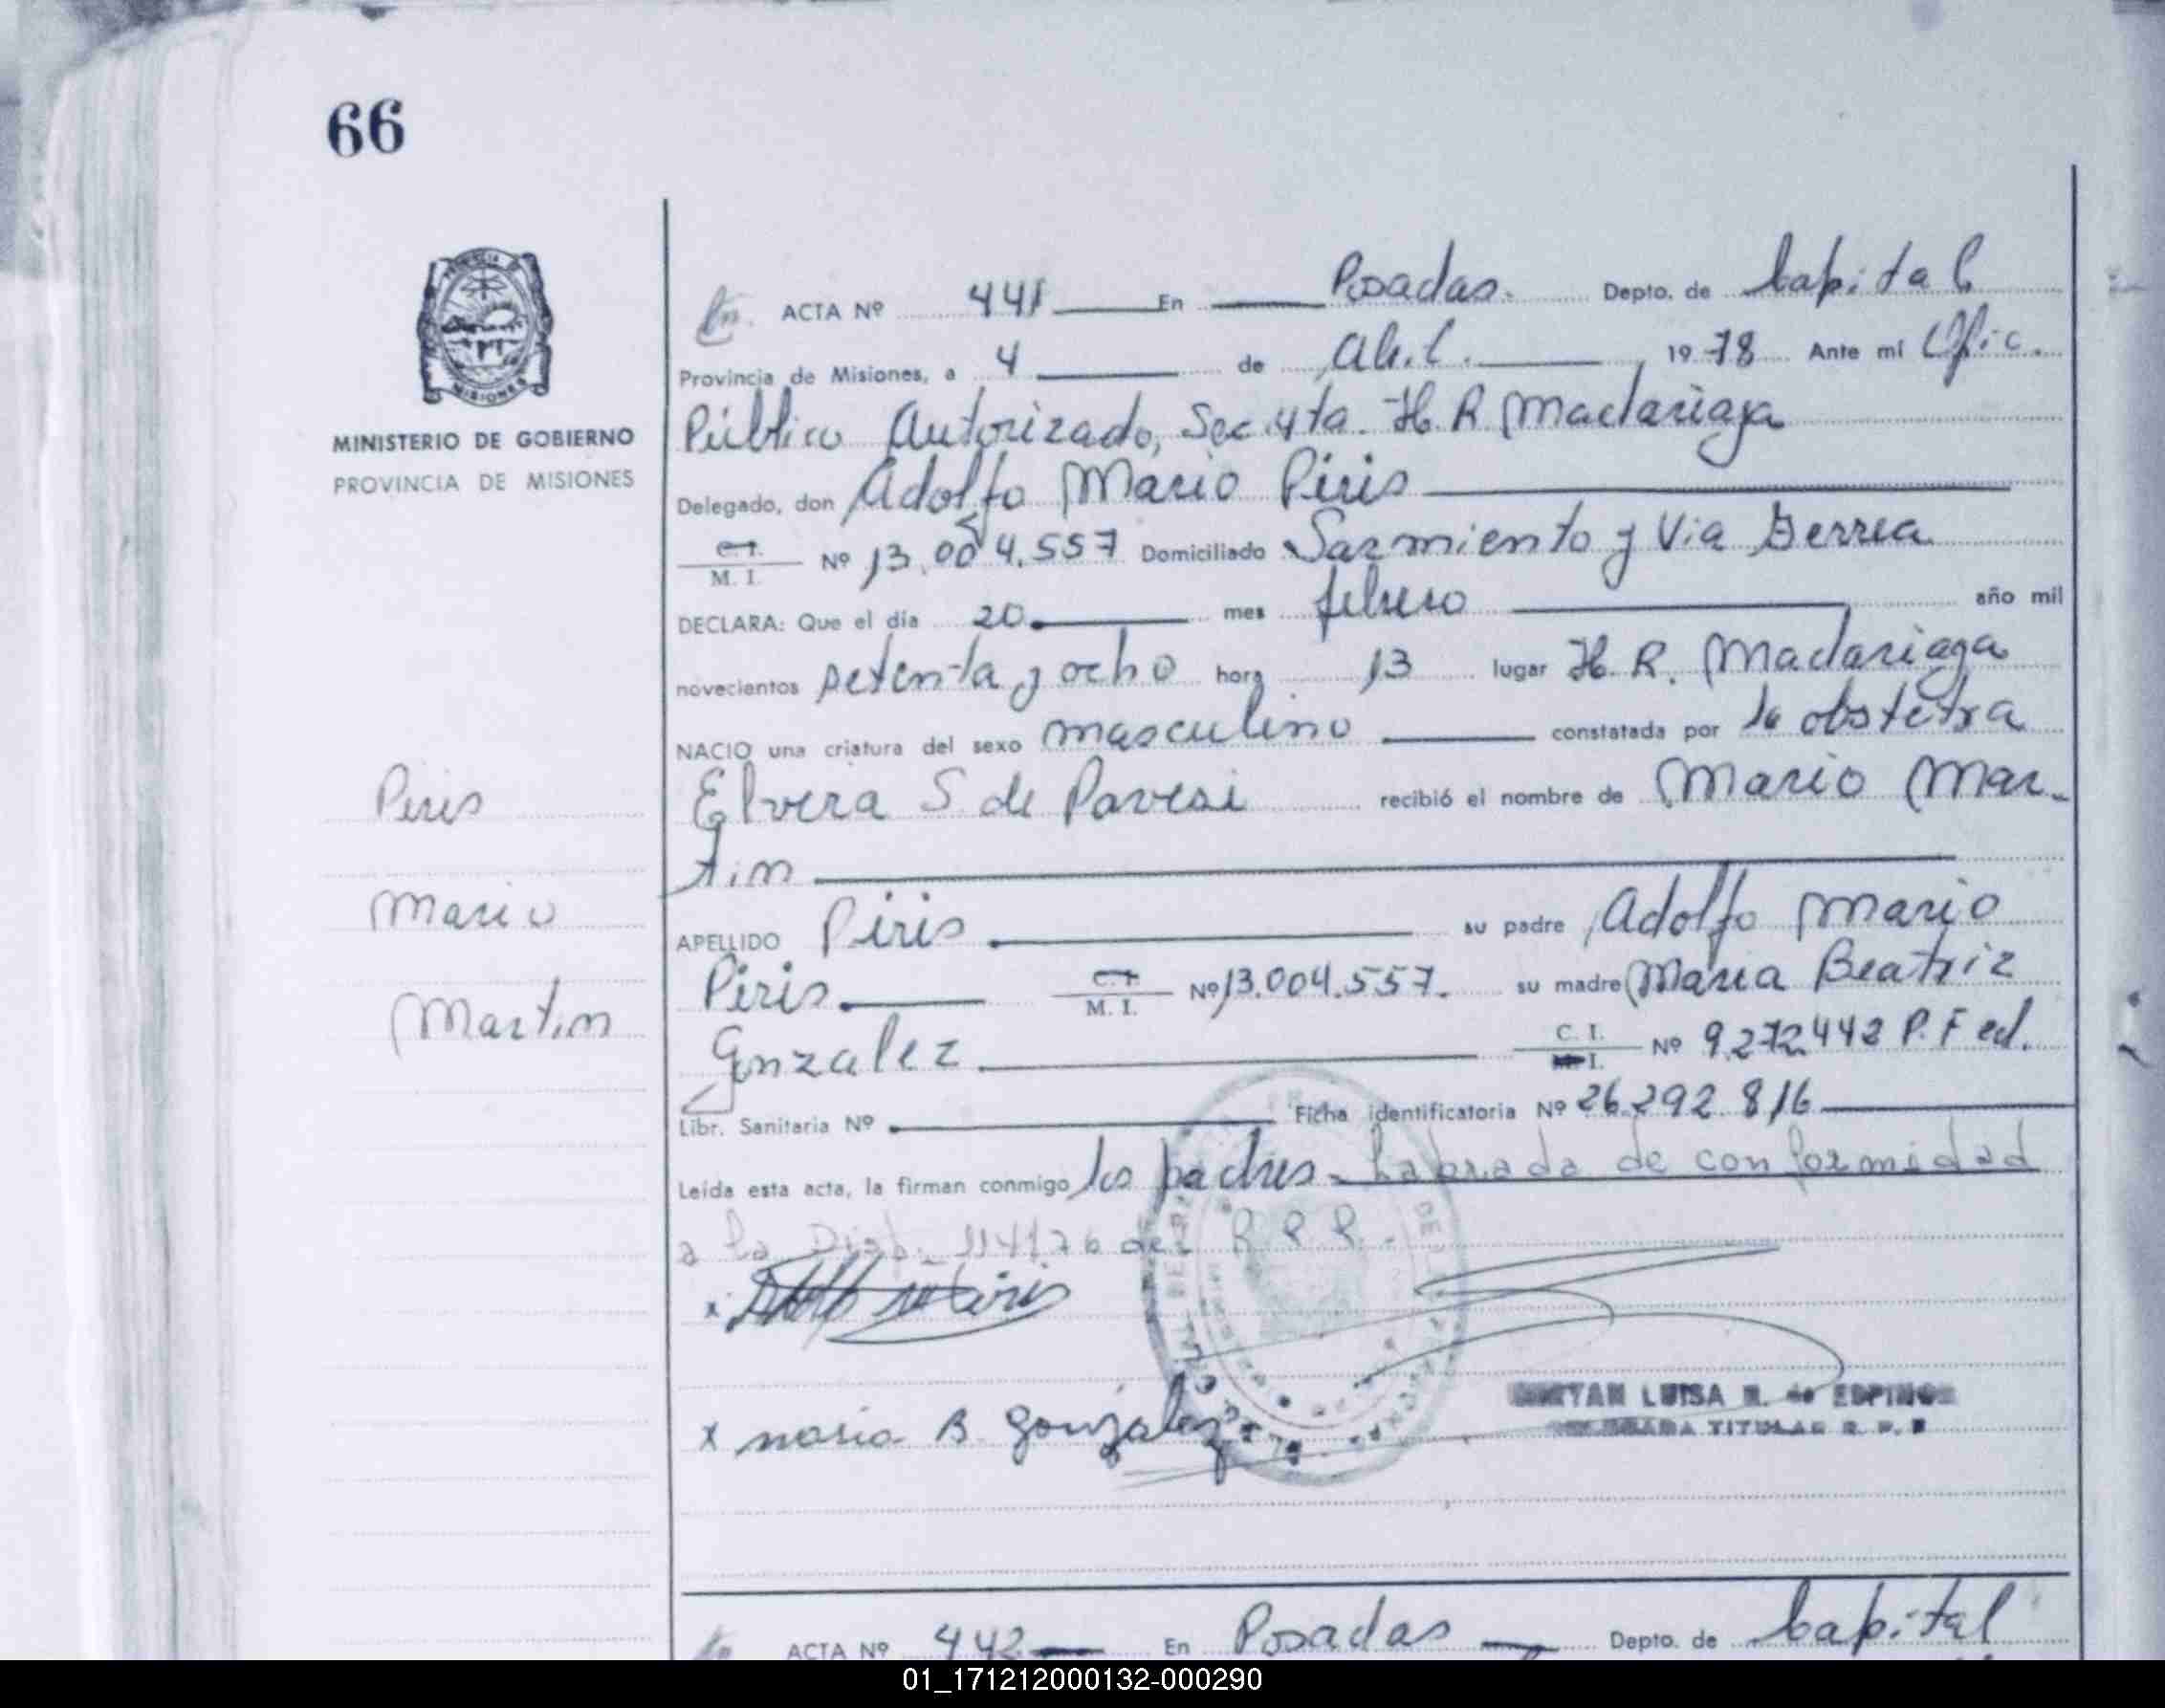 66
ACTA Nº 441 En Posadas. Depto. de Capital
Provincia de Misiones, a 4 de Abril. 1978 Ante mi Ofic.
Público Autorizado, Sec 4ta. H. R. Madariaga
Delegado, don Adolfo Mario Piris
C.I.
M. I. Nº 13.004.557 Domiciliado Sarmiento y Via Ferrea
DECLARA: Que el día 20 mes febrero año mil
novecientos setenta y ocho hora 13 lugar H. R. Madariaga
NACIO una criatura del sexo masculino constatada por la obstetra
Elvera S. de Pavesi recibió el nombre de Mario Mar-
tin
APELLIDO Piris su padre Adolfo Mario
Piris. C.I.
M. I. Nº 13.004.557. su madre Maria Beatriz
Gonzalez C. I.
M. I. Nº 9.272.442 P. Fed.
Libr. Sanitaria Nº Ficha identificatoria Nº 26.292.816
Leída esta acta, la firman conmigo los padres. Labrada de conformidad
a la Disp. 114/76 del R P P.
x
x maria B. gonzalez
LUISA de ESPINOZA
TITULAR R. P.
MINISTERIO DE GOBIERNO
PROVINCIA DE MISIONES
Piris
Mario
Martin
ACTA Nº 442 En Posadas Depto. de Capital
01_171212000132-000290